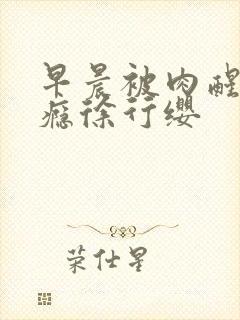 早晨被肉醒
瘾徐行缨
荣仕星